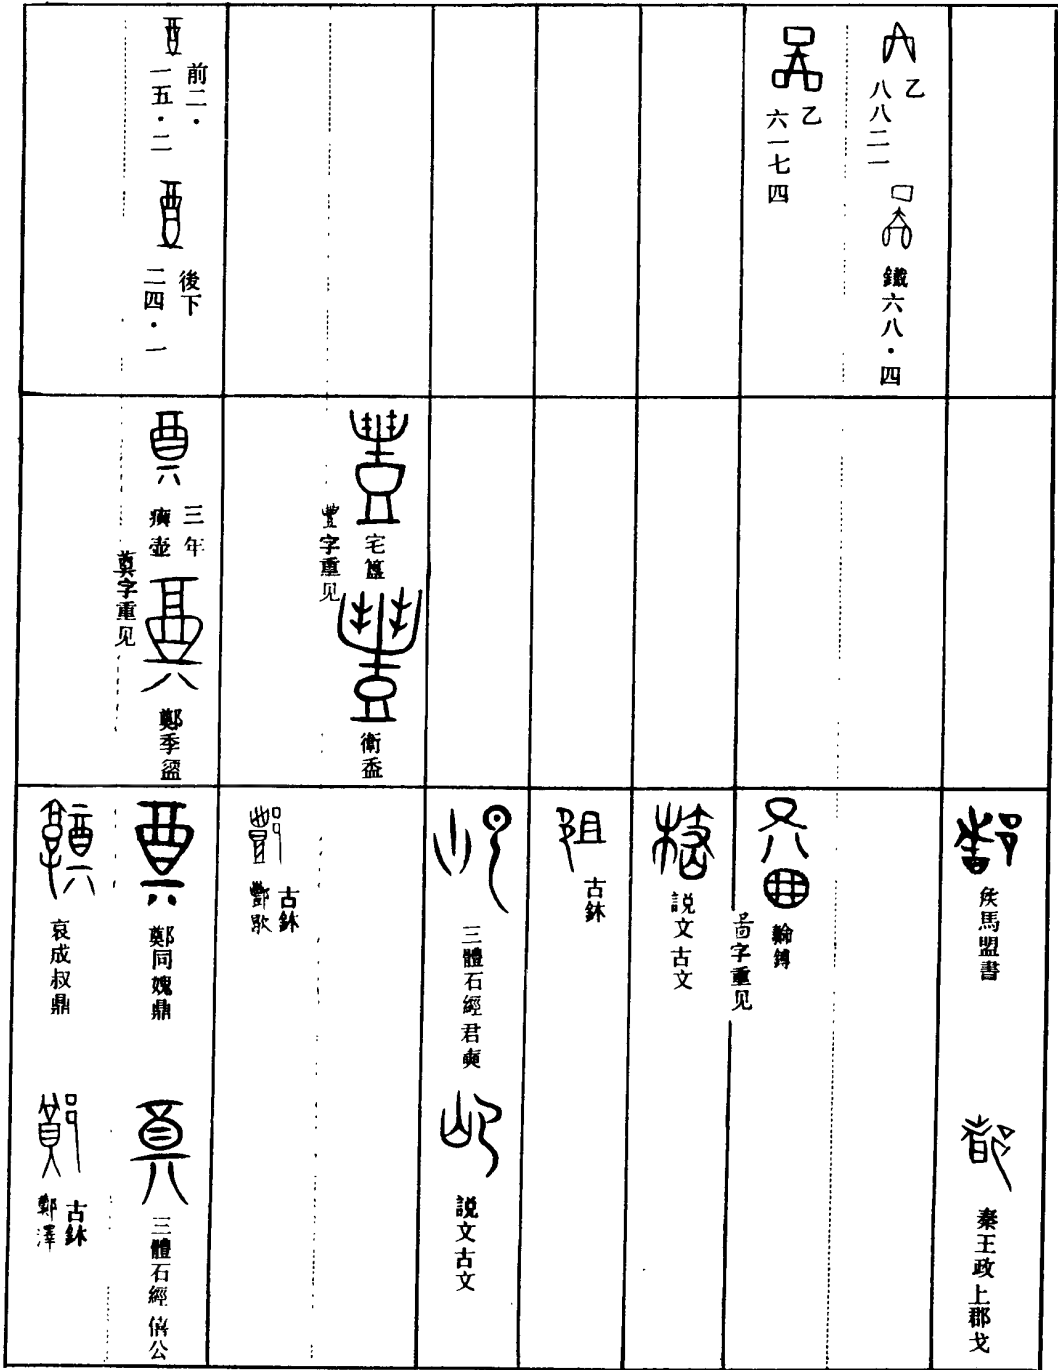 乙
八八二一
鐵六八・四
乙
六一七四
前二・
一五・二
後下
二四・一
宅簋
衛盉
豐字重见
三年
𤼈壺
鄭季盨
奠字重见
矦馬盟書
秦王政上郡戈
綸鎛
啚字重见
説文古文
古鉢
三體石經君奭
説文古文
古鉢
酆𣣈
鄭同媿鼎
三體石經僖公
哀成叔鼎
古鉢
鄭澤